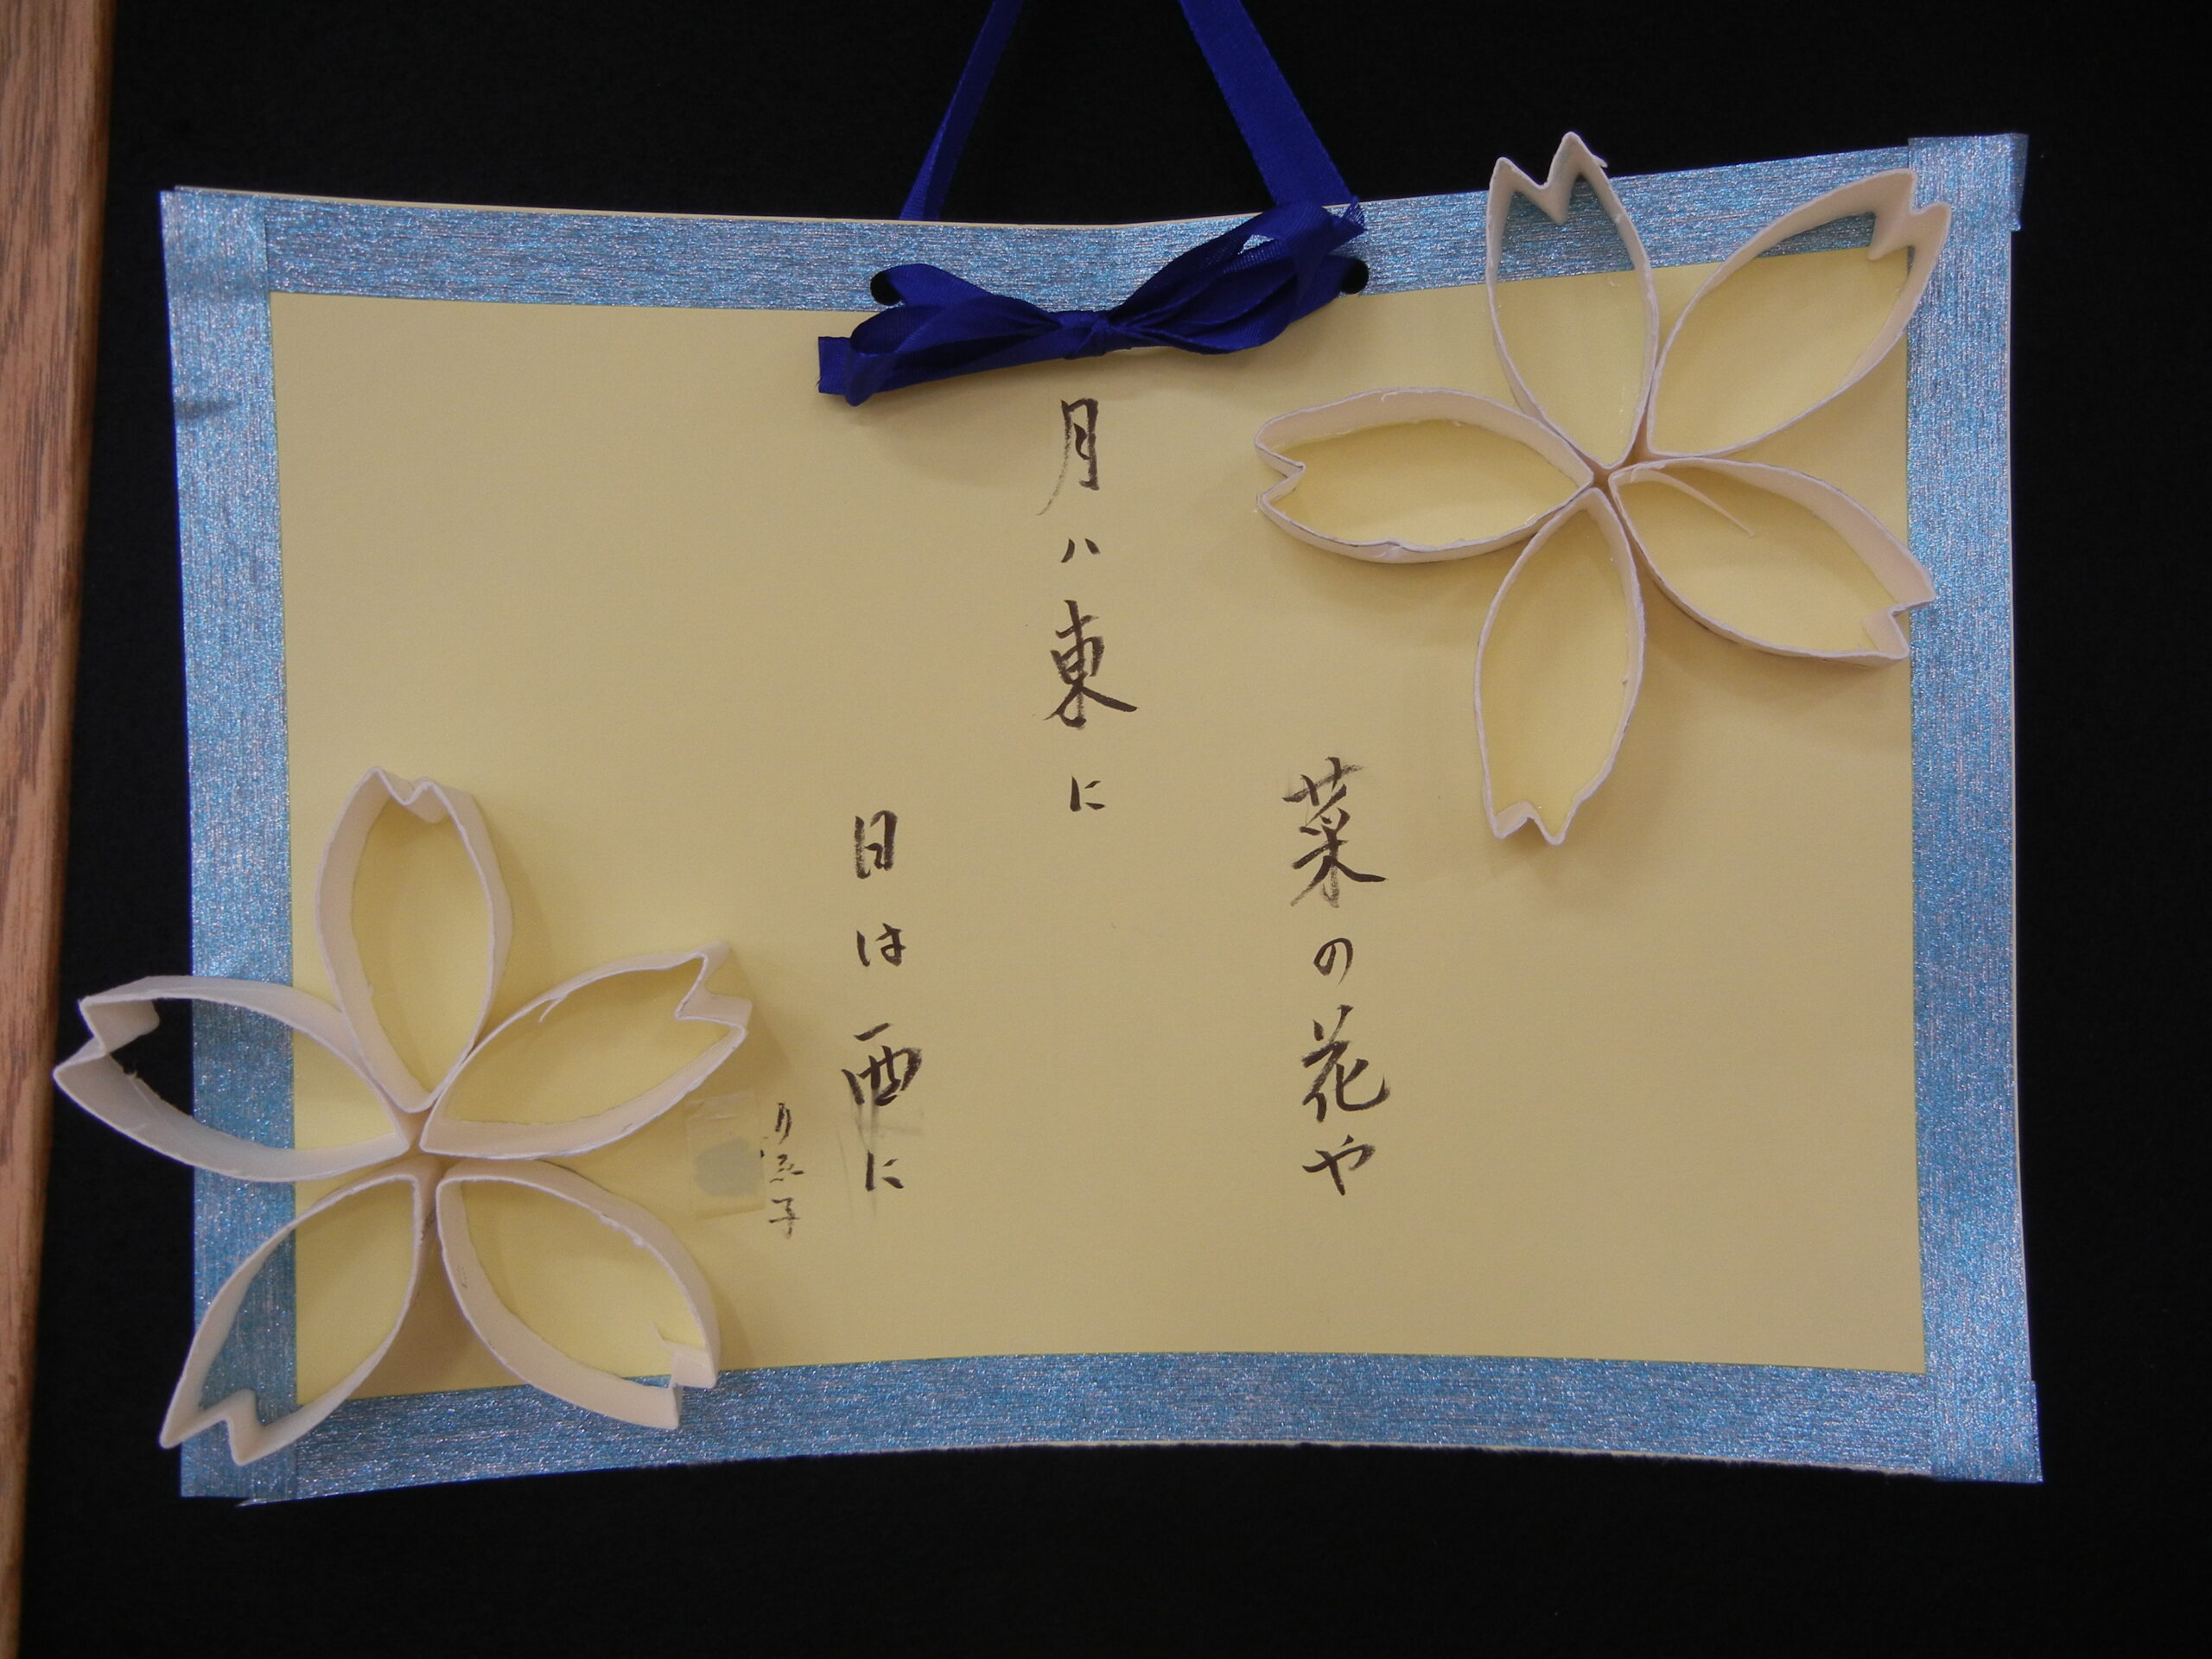 菜の花や
月ハ東に
日は西に